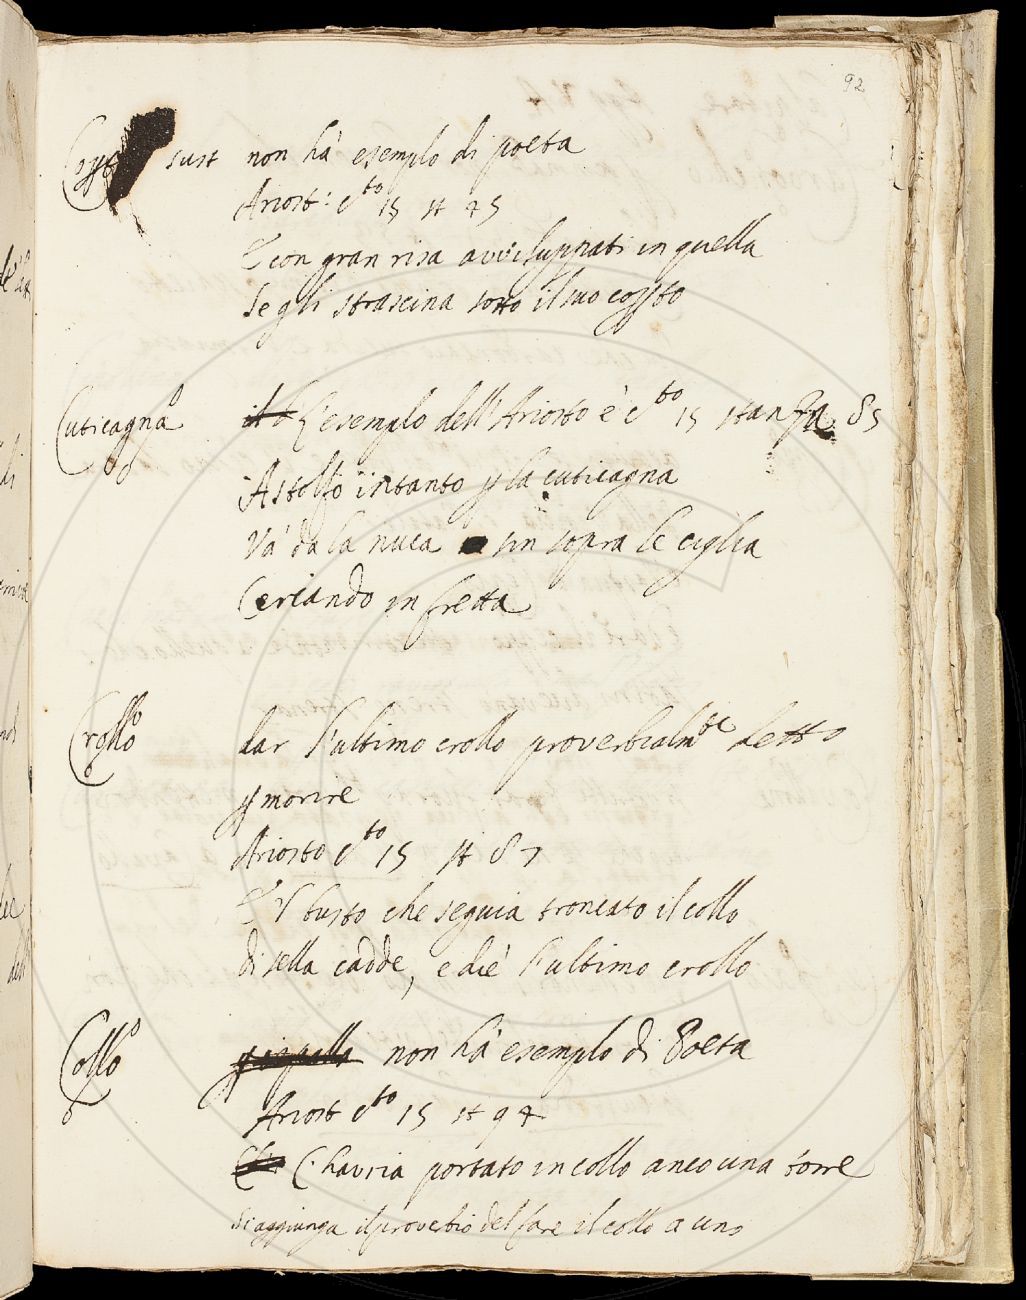 92
sust non hà esempio di poeta
Ariost: c.to 15 st 45
E con gran risa avviluppati in quella
Se gli strascina sotto il suo coffto
Cuticagna L'esempio dell'Ariosto è c.to 15 stanza 85
Astolfo intanto p la cuticagna
Và da la nuca sin sopra le ciglia
Cercando in fretta
Crollo dar l'ultimo crollo proverbialm.te detto
p morire
Ariosto c.to 15 st 87
E 'l busto che seguia troncato il collo
di sella cadde, e diè l'ultimo crollo
Collo non hà esempio di Poeta
Ariost c.to 15 st 94
C'havria portato in collo anco una torre
Si aggiunga il proverbio del fare il collo a uno